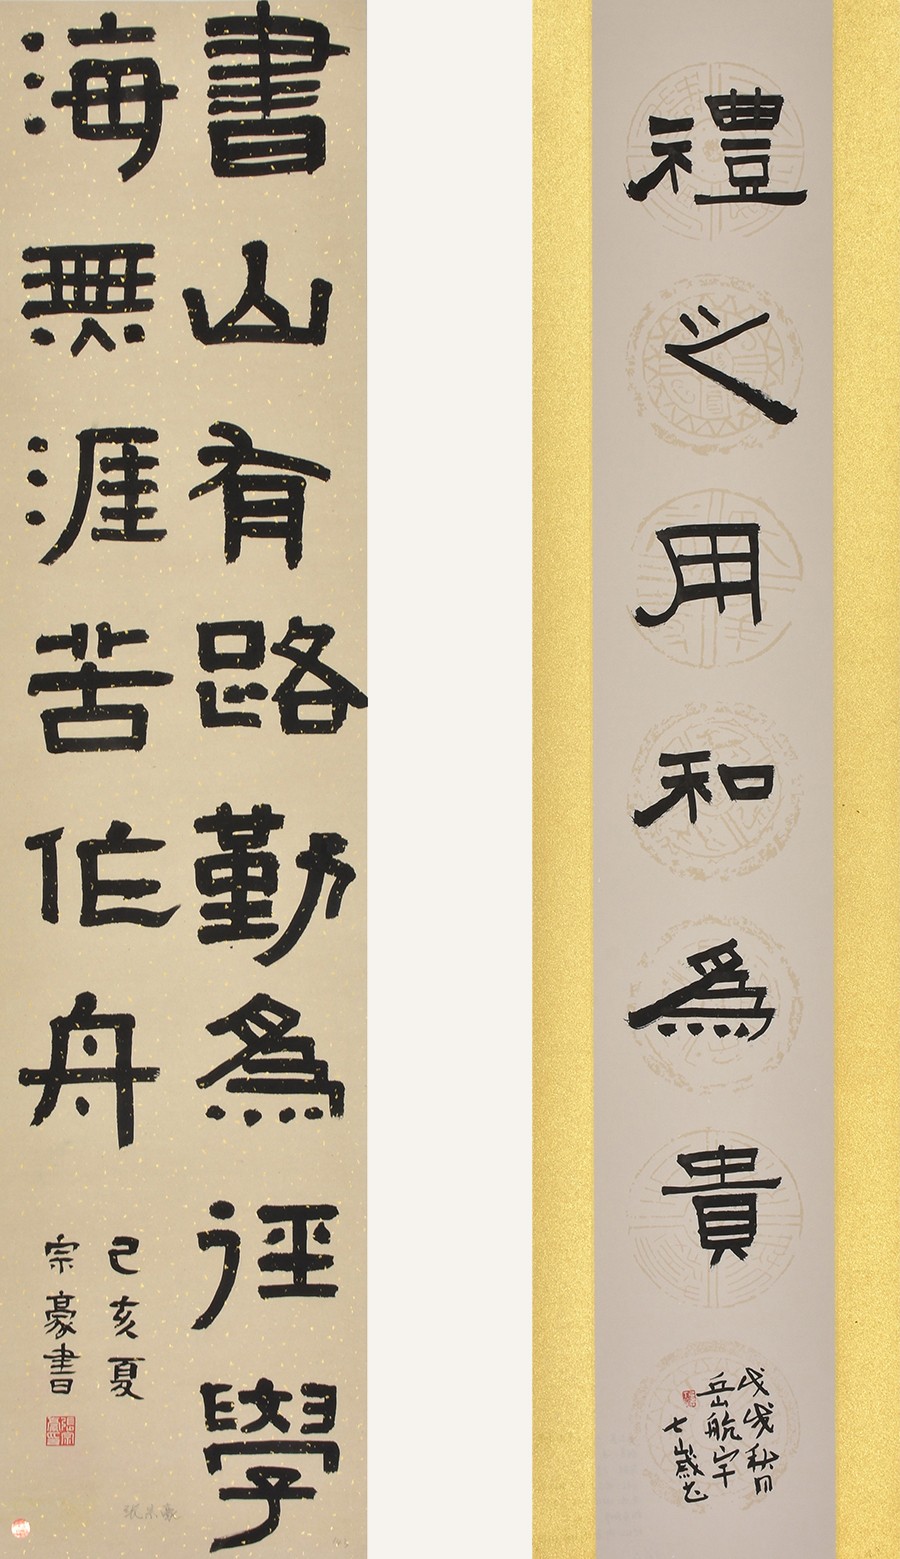 禮之用和為貴
戊戌秋日
岳航宇
七歲書
書山有路勤為徑學
海無涯苦作舟
己亥夏
宗豪書
張宗豪